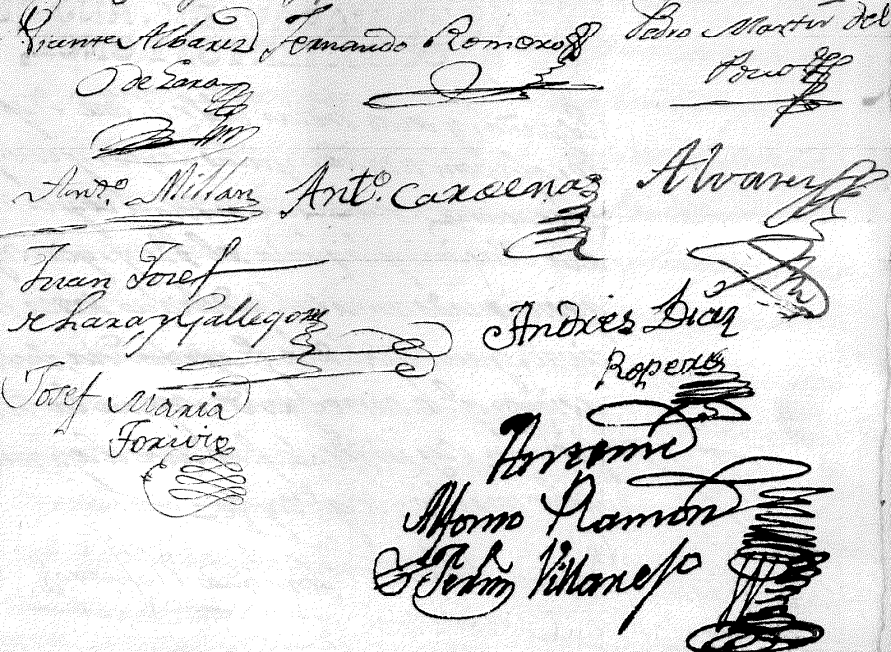 Vicente Albarez Fernando Romero Pedro Martin del
de Lara Pozo
Antº. Millan Antº. Cardenas Alvarez
Juan Josef
de Lara y Gallegos
Andres Dian
Ropero
Josef Maria
Torivio
Alfonso Ramon
Villarejo